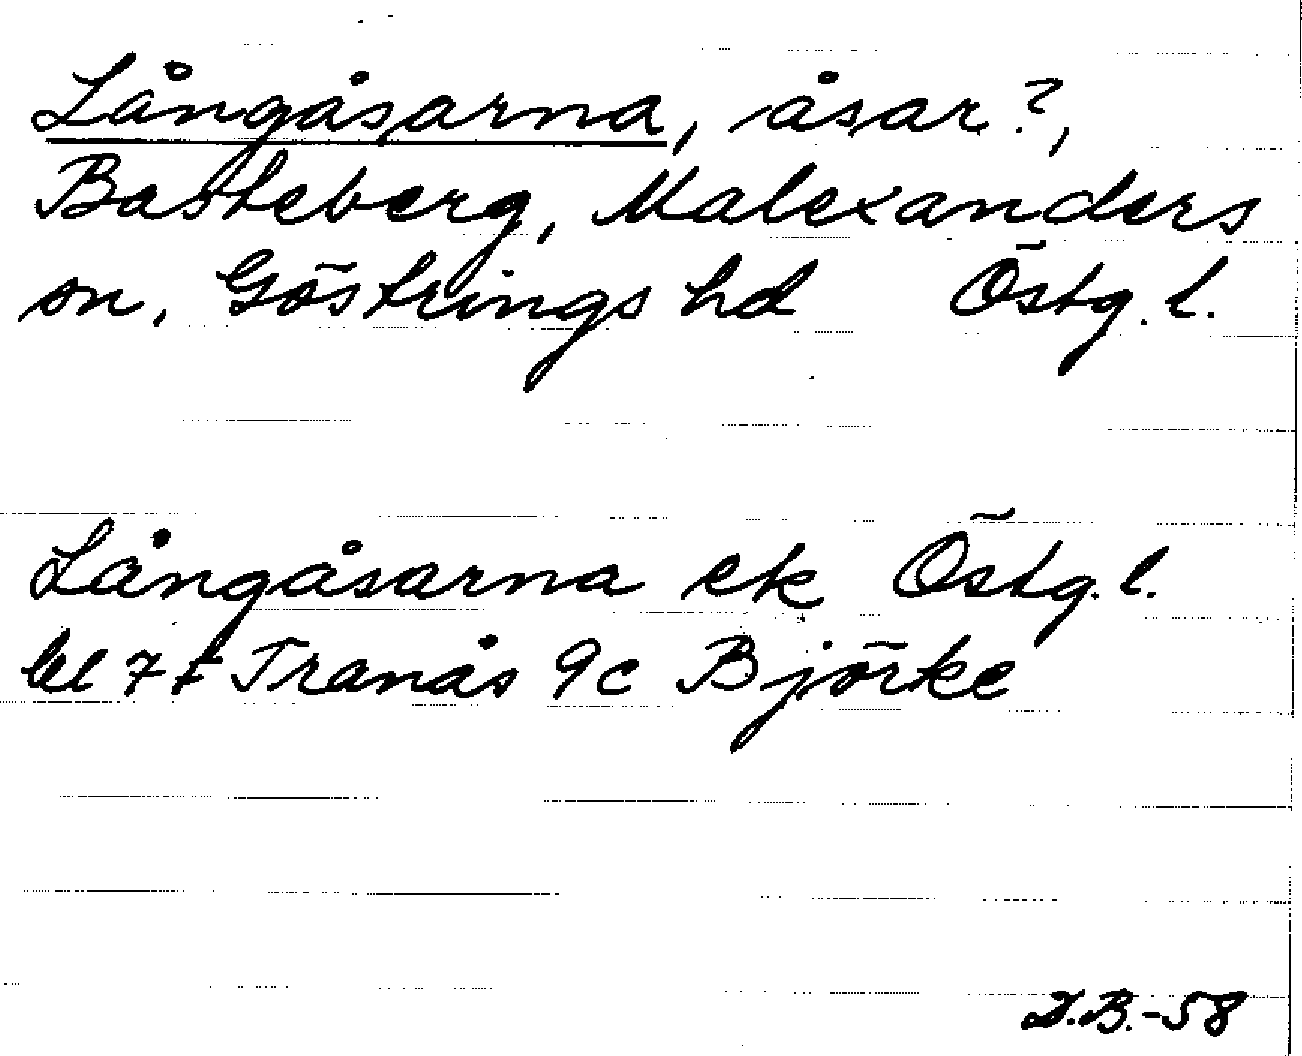 Långåsarna, åsar?,
Basteberg, Malexanders
sn, Göstrings hd Östg. l.
Långåsarna ek Östg. l.
bl 7 f Tranås 9c Björke
D.B.-58